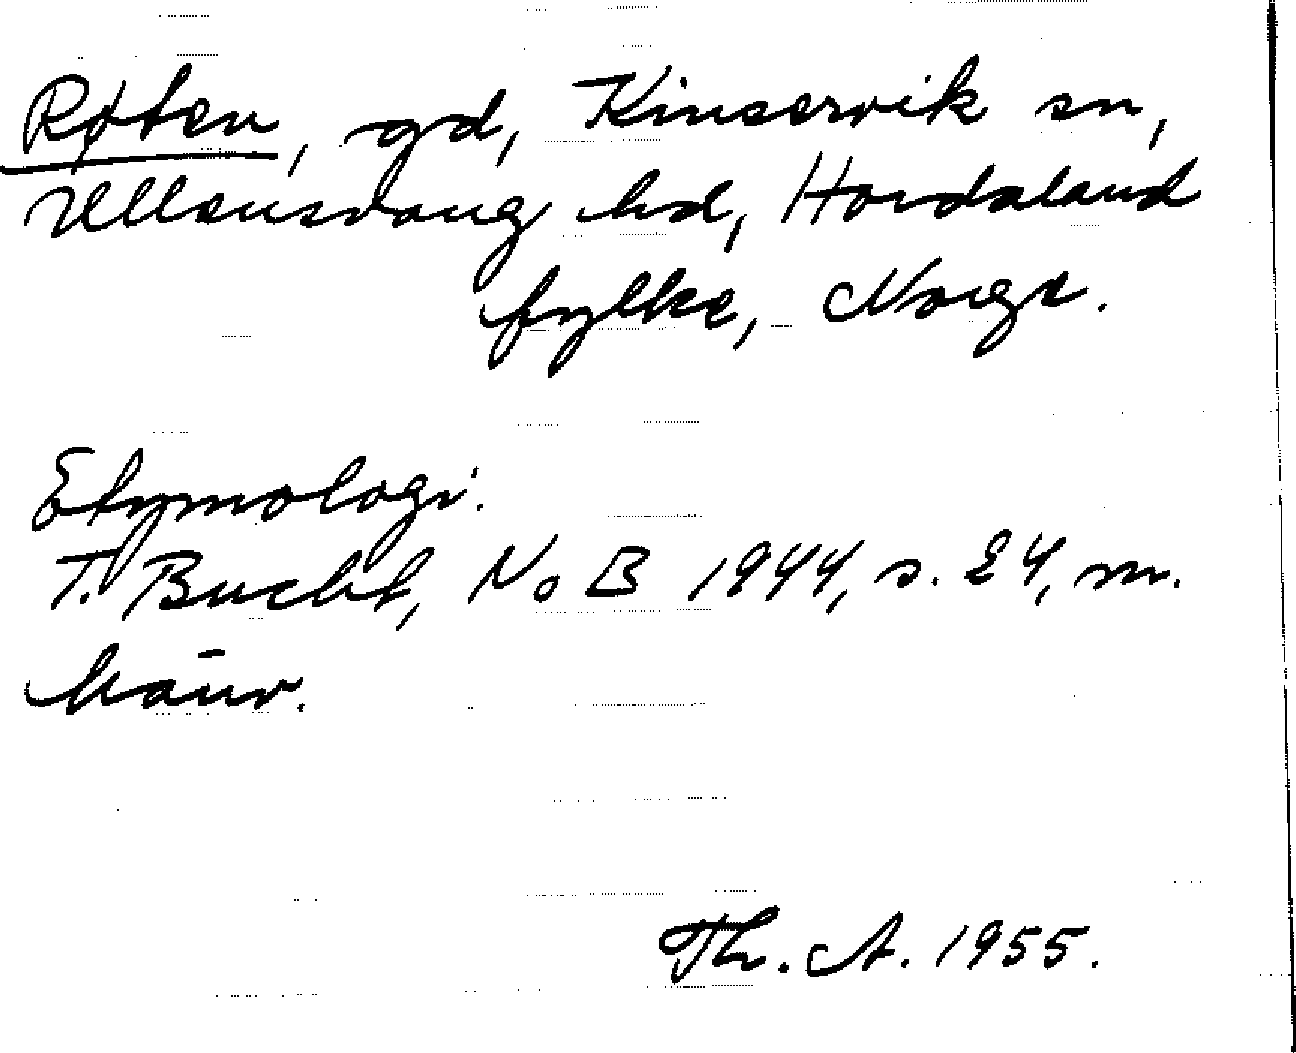 Røten, gd, Kinservik sn,
Ullensvang hd, Hordaland
fylke, Norge.
Etymologi.
T. Bucht, NoB 1944, s. 24, m.
hänv.
Th. A. 1955.